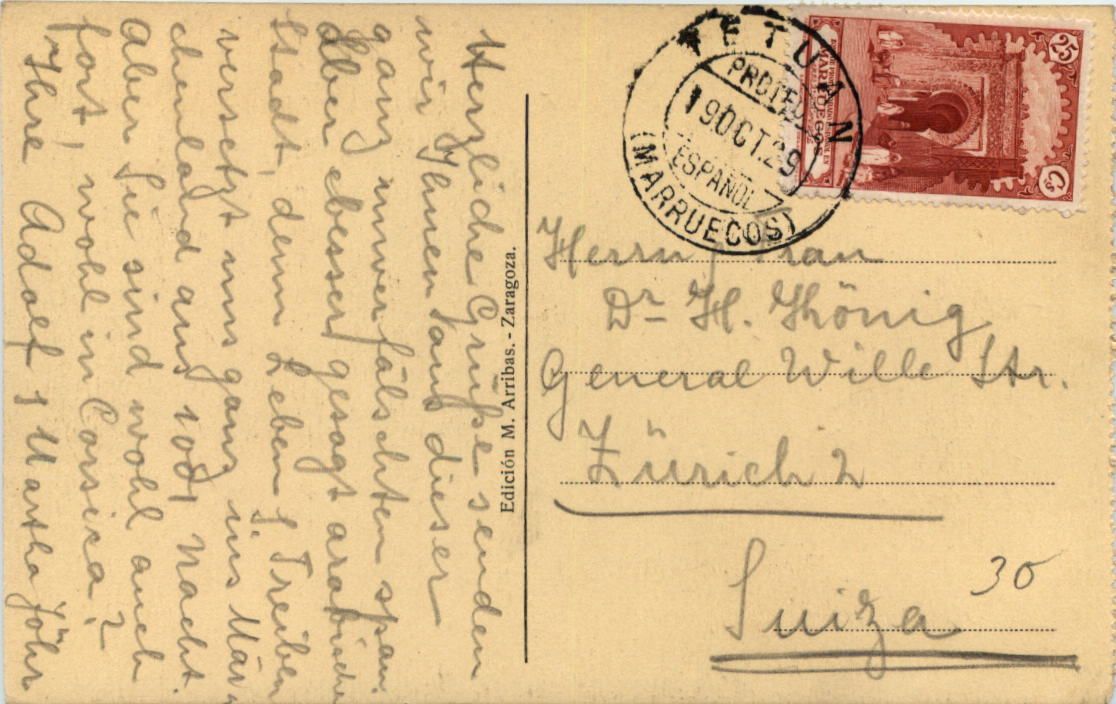 Herzliche Grüße senden
wir Ihnen aus dieser
ganz unverfälschten span.
oder besser gesagt arabischen
Stadt, denn Leben & Treiben
versetzt uns ganz ins Mär-
chenland aus 1001 Nacht.
Aber Sie sind wohl auch
fort, wohl in Corsica?
Ihre Adolf & Martha Jöhr
Edición M. Arribas. - Zaragoza.
TETUAN
PROTEC
19 OCT. 29
ESPAÑOL
(MARRUECOS)
25
MARRUECOS
Cs
Herrn & Frau
Dr H. König
General Wille Str.
Zürich 2
Suiza
30